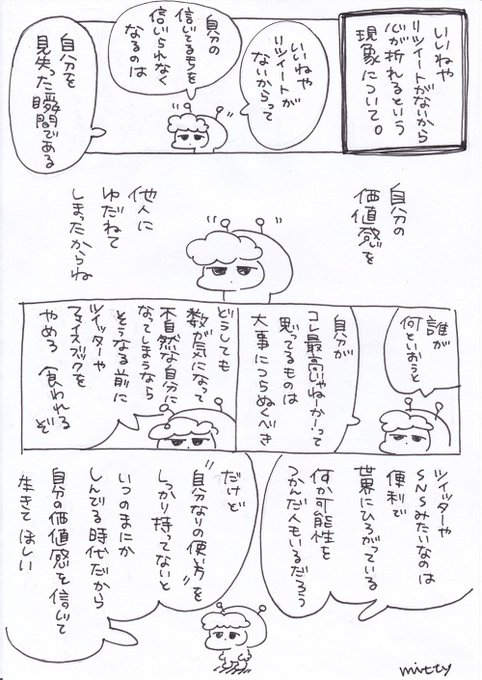 いいねや
リツイートがないから
心が折れるという
現象について。
いいねや
リツイートが
ないからって
自分の
信じてるモチを
信じられなく
なるのは
自分を
見失った瞬間である
自分の
価値感を
他人に
ゆだねて
しまったからね
誰が
何といおうと
自分が
コレ最高じゃねーかー!って
思ってるものは
大事につらぬくべき
どうしても
数が気になって
不自然な自分に
なってしまうなら
そうなる前に
ツイッターや
フェイスブックを
やめろ 食われるぞ
ツイッターや
SNSみたいなのは
便利で
世界にひろがっている
何か可能性を
つかんだ人もいるだろう
だけど
"自分なりの使い方"を
しっかり持ってないと
いつのまにか
しんでる時代だから
自分の価値感を信じて
生きてほしい
mitty